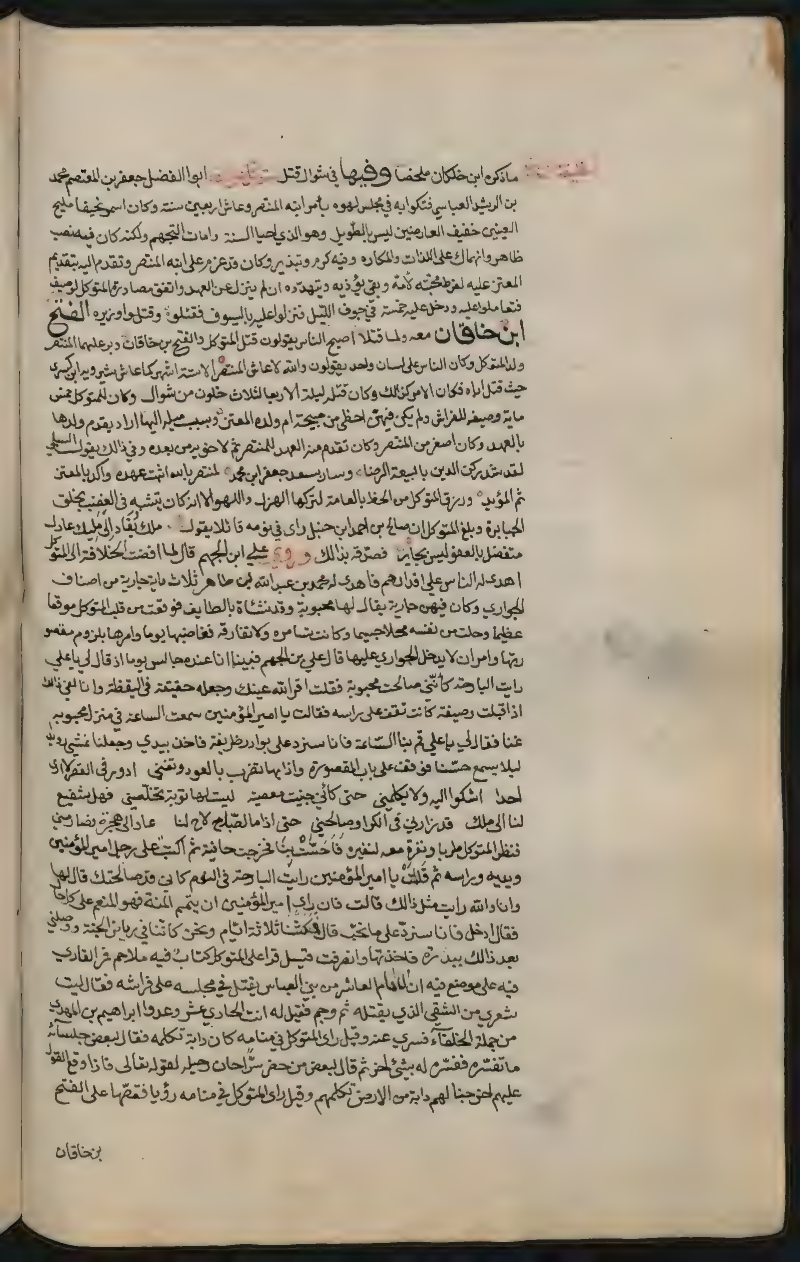 ما ذكره ابن خلكان ملخصا وفيها في شوال قتل ابوا الفضل جعفر بن المعتصم محمد
بن الرشيد العباسي فتكوا به في مجلس لهوه بامر ابنه المنتصر وعاش اربعين سنة وكان اسمر نحيفا مليح
العينين خفيف العارضين ليس بالطويل وهو الذي احيا السنة وامات التجهم ولكنه كان فيه نصب
ظاهر وانهماك على اللذات والمكاره وفيه كرم وتبذير وكان قد عزم على ابنه المنتصر وتقدم اليه بتقديم
المعتز عليه لفرط محبته لامه وبقي يؤذيه ويتهدده ان لم ينزل عن العهد واتفق مصادرة المتوكل لوصيف
فتعاملوا عليه ودخل عليه خمسة في جوف الليل فنزلوا عليه بالسيوف فقتلوه وقتلوا وزيره الفتح
ابن خاقان معه ولما قتلا اصبح الناس يقولون قتل المتوكل والفتح بن خاقان دبر عليهما المنتصر
ولد المتوكل وكان الناس على لسان واحد يقولون والله لا عاش المنتصر الا ستة اشهر كما عاش شيرويه ابن كسرى
حيث قتل اباه فكان الامر كذلك وكان قتله ليلة الاربعا لثلاث خلون من شوال وكان للمتوكل خمس
ماية وصيفه للفراش ولم يكن فيهن احظى من صبيحة ام ولده المعتز وبسبب ميله اليها اراد يقدم ولدها
بالعهد وكان اصغر من المنتصر وكان تقدم منه العهد للمنتصر ثم لاخويه من بعده وفي ذالك يقول السلمي
لقد شد ركن الدين بالبيعة الرضا وسار بسعد جعفر ابن محمد لمنتصر بالله اثبت عهده واكد بالمعتز
ثم المؤيد ورزق المتوكل من الحظ بالعامة لتركها الهزل واللهو الا انه كان يتشبه في الغضب بخلق
الجبابرة وبلغ المتوكل ان صالح بن احمد ابن حنبل راى في نومه قائلا يقول ملك يقاد الى مليك عادل
متفضل بالعفو ليس بجاير فصدقه بذالك وروي علي ابن الجهم قال لما افضت الخلافة الى المتوكل
اهدى له الناس على اقدارهم فاهدى له محمد بن عبد الله بن طاهر ثلاث ماية جارية من اصناف
الجواري وكان فيهن جارية يقال لها محبوبة وقد نشاة بالطايف فوقعت من قلب المتوكل موقعا
عظيما وحلت من نفسه محلا جسيما وكانت تسامره ولا تفارقه فغاضبها يوما وامرها بلزوم مقصو
رتها وامر ان لا يدخل الجواري عليها قال علي بن الجهم فبينا انا عنده جالس يوما اذ قال لي يا علي
رايت البارحة كأنني صالحت محبوبة فقلت اقر الله عينك وجعله حقيقة في اليقظة وانا لفي ذالك
اذ اقبلت وصيفة كانت تقف على راسه فقالت يا امير المؤمنين سمعت الساعة في منزل محبوبه
غنا فقال لي يا علي قم بنا الساعة فانا سنرد على بوادر ظريفة فاخذ بيدي وجعلنا نمشي رويدا
ليلا يسمع حسنا فوقف على باب المقصورة واذا بها تضرب بالعود وتغني ادور في القصر لا ارى
احدا اشكوا اليه ولا يكلمني حتى كأني جنيت معصية ليست لها توبة تخلصني فهل شفيع
لنا الى ملك قد زارني في الكرا وصالحني حتى اذا ما الصباح لاح لنا عاد الى هجره فصارمني
فنظر المتوكل طربا ونفره معه لنفيره فاحست بنا فخرجت حافية ثم اكبت على رجل امير المؤمنين
ويديه وراسه ثم قالت يا امير المؤمنين رايت البارحة في النوم كاني قد صالحتك قال لها
وانا والله رايت مثل ذالك قالت فان راي امير المؤمنين ان يتمم المنة فهو المنعم على كل حال
فقال ادخل فانا سنرد على ما تحب قال فمكثنا ثلاثة ايام ونحن كاننا في رياض الجنة ووصلني
بعد ذالك ببدرة فاخذتها وانصرفت قيل قرا على المتوكل كتاب فيه ملاحم فمر القاري
فيه على موضع فيه ان الامام العاشر من بني العباس يقتل في مجلسه على فراشه فقال ليت
شعري من الشقي الذي يقتله ثم وجم فقيل له انت الحادي عشر وعدوا ابراهيم بن المهدي
من جملة الخلفاء فسري عنه وقيل راى المتوكل في منامه كان دابة تكلمه فقال لبعض جلسائه
ما تفسره ففسره له بشئ اخر ثم قال لبعض من حضر سرا حان رحيله لقوله تعالى فاذا وقع القول
عليهم اخرجنا لهم دابة من الارض تكلمهم وقيل راى المتوكل في منامه رؤيا فقصها على الفتح
بن خاقان